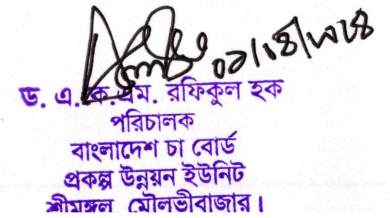 ড. এ. কে. এম. রফিকুল হক
পরিচালক
বাংলাদেশ চা বোর্ড
প্রকল্প উন্নয়ন ইউনিট
শ্রীমঙ্গল, মৌলভীবাজার।